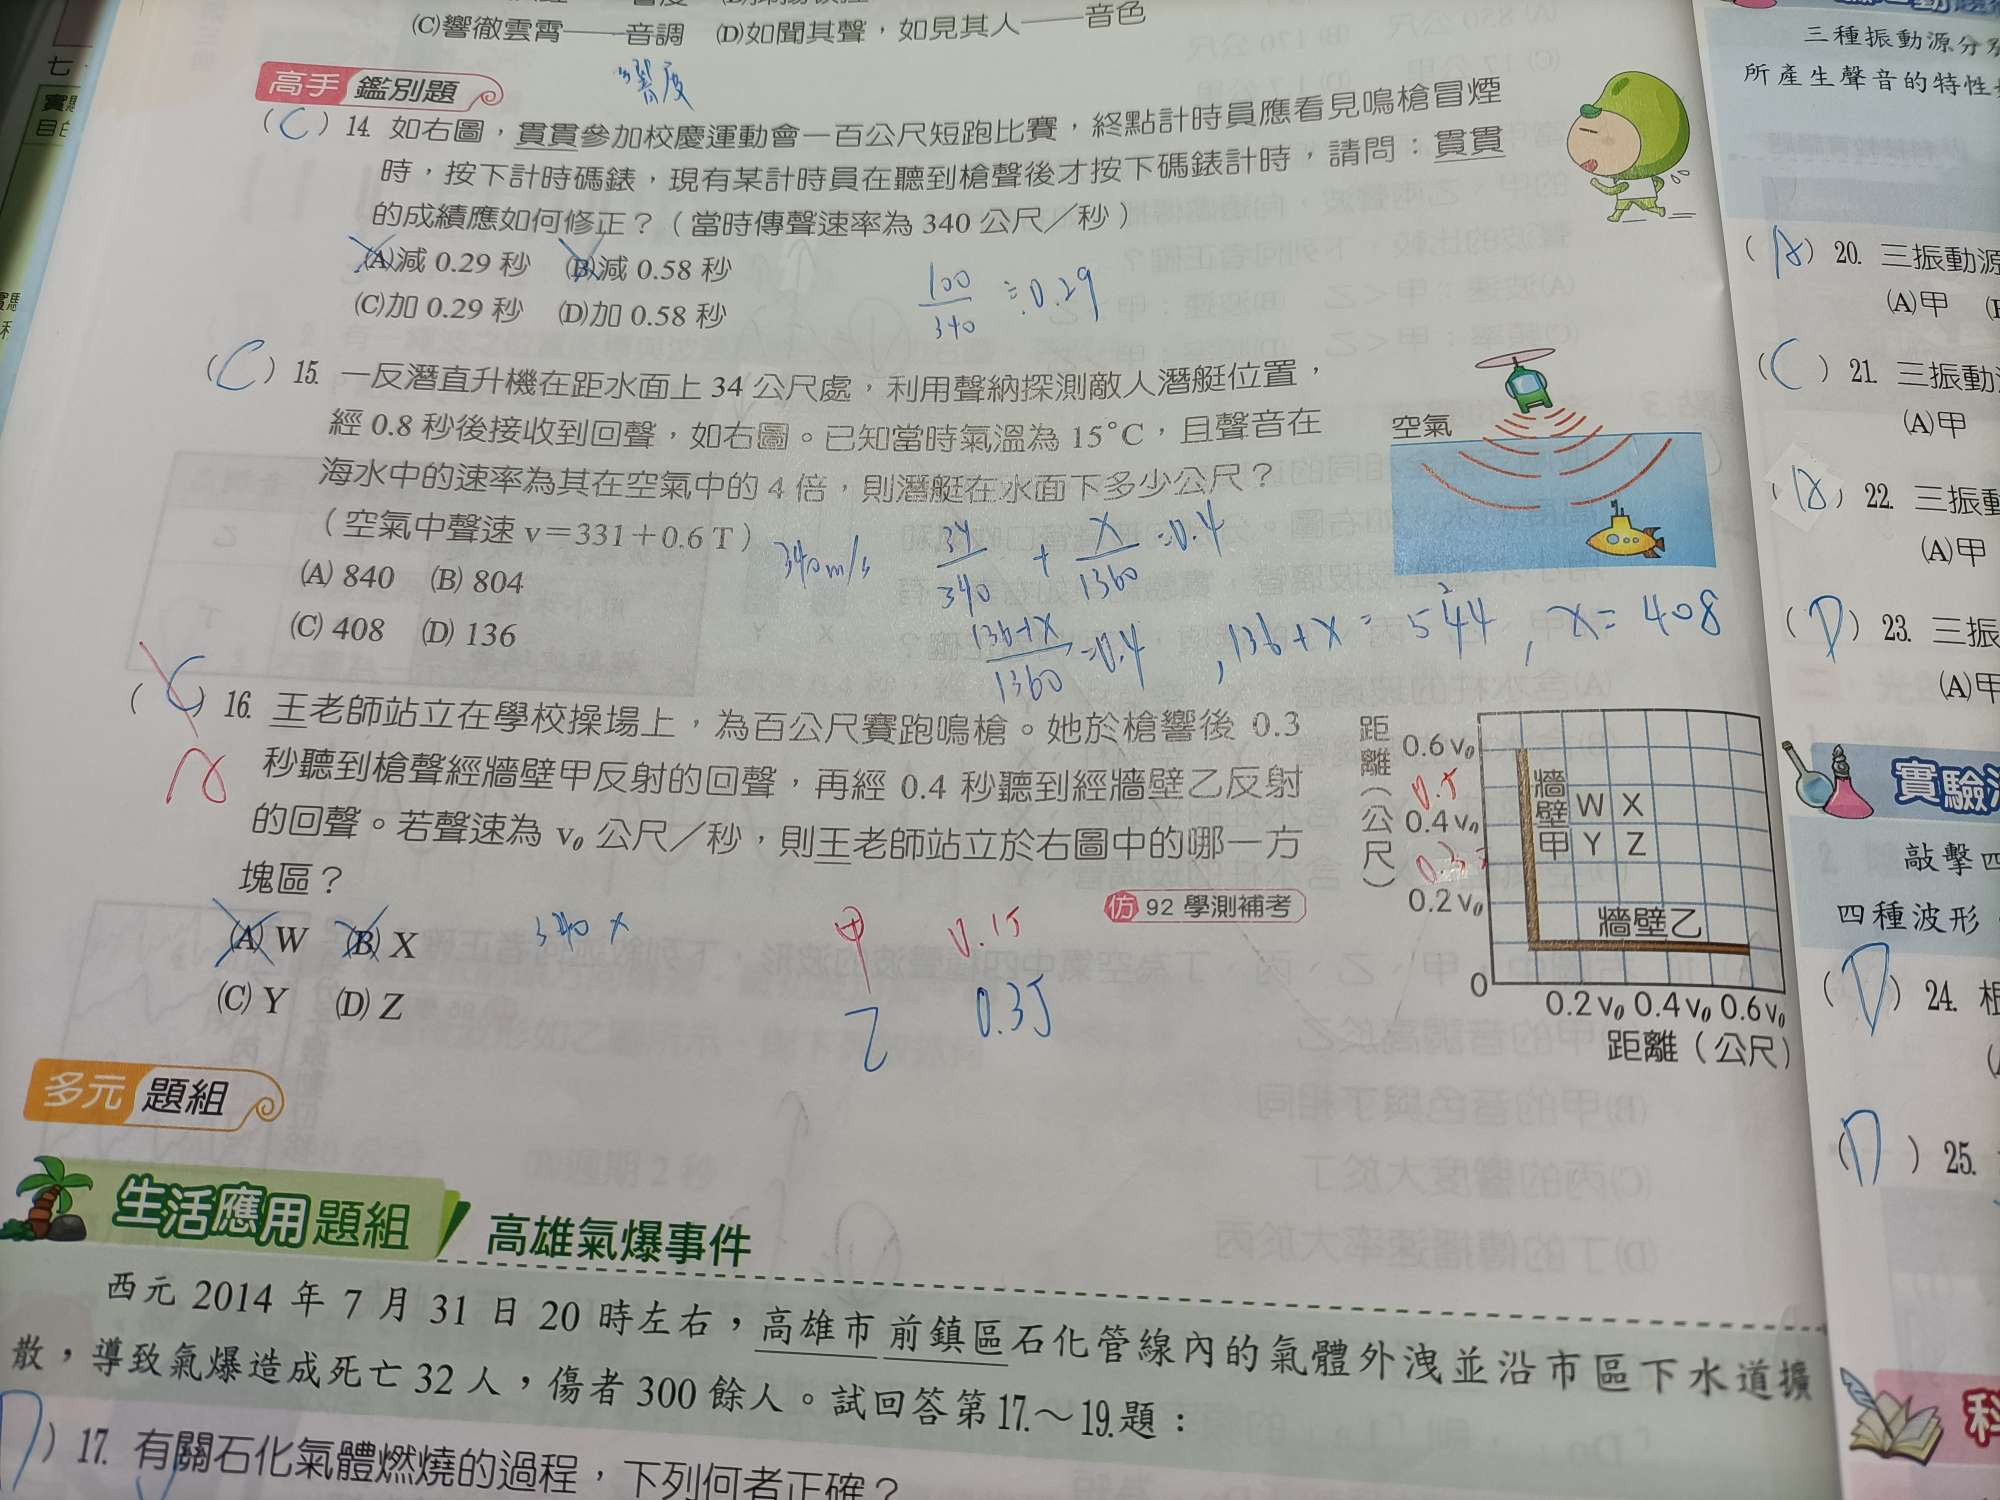 (C)響徹雲霄——音調 (D)如聞其聲，如見其人——音色
響度
高手 鑑別題
(C) 14. 如右圖，貫貫參加校慶運動會一百公尺短跑比賽，終點計時員應看見鳴槍冒煙
時，按下計時碼錶，現有某計時員在聽到槍聲後才按下碼錶計時，請問：貫貫
的成績應如何修正？（當時傳聲速率為 340 公尺／秒）
(A)減 0.29 秒 (B)減 0.58 秒
(C)加 0.29 秒 (D)加 0.58 秒
100/340 ≒ 0.29
(C) 15. 一反潛直升機在距水面上 34 公尺處，利用聲納探測敵人潛艇位置，
經 0.8 秒後接收到回聲，如右圖。已知當時氣溫為 15°C，且聲音在
海水中的速率為其在空氣中的 4 倍，則潛艇在水面下多少公尺？
（空氣中聲速 v＝331＋0.6 T）
(A) 840 (B) 804
(C) 408 (D) 136
空氣
340m/s 34/340 + x/1360 = 0.4
136+x/1360 = 0.4 , 136+x = 544 , x = 408
(C) 16. 王老師站立在學校操場上，為百公尺賽跑鳴槍。她於槍響後 0.3
秒聽到槍聲經牆壁甲反射的回聲，再經 0.4 秒聽到經牆壁乙反射
的回聲。若聲速為 v0 公尺／秒，則王老師站立於右圖中的哪一方
塊區？
仿 92 學測補考
(A) W (B) X
(C) Y (D) Z
340 x
甲 0.15
乙 0.35
距離（公尺）
0.6 v0
0.5
0.4 v0
0.2 v0
0
牆壁甲
W X
Y Z
牆壁乙
0.2 v0 0.4 v0 0.6 v0
距離（公尺）
多元 題組
生活應用題組 高雄氣爆事件
西元 2014 年 7 月 31 日 20 時左右，高雄市前鎮區石化管線內的氣體外洩並沿市區下水道擴
散，導致氣爆造成死亡 32 人，傷者 300 餘人。試回答第17.～19.題：
) 17. 有關石化氣體燃燒的過程，下列何者正確？
三種振動源分
所產生聲音的特性
) 20. 三振動源
(A)甲
(C) 21. 三振動
(A)甲
) 22. 三振動
(A)甲
(D) 23. 三振
(A)甲
實驗
敲擊四
四種波形
(D) 24. 根
(D) 25.
科